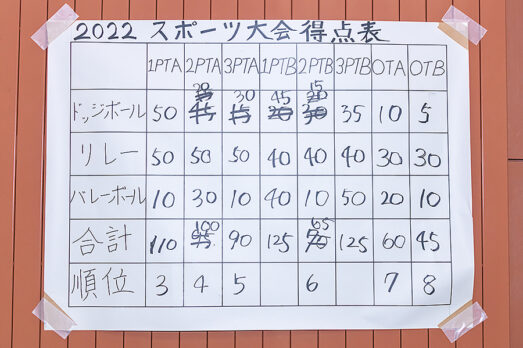 2022 スポーツ大会得点表
1PTA 2PTA 3PTA 1PTB 2PTB 3PTB OTA OTB
20 30 45 15
ドッジボール 50 35 10 5
リレー 50 50 50 40 40 40 30 30
バレーボール 10 30 10 40 10 50 20 10
100 65
合計 110 90 125 125 60 45
順位 3 4 5 6 7 8